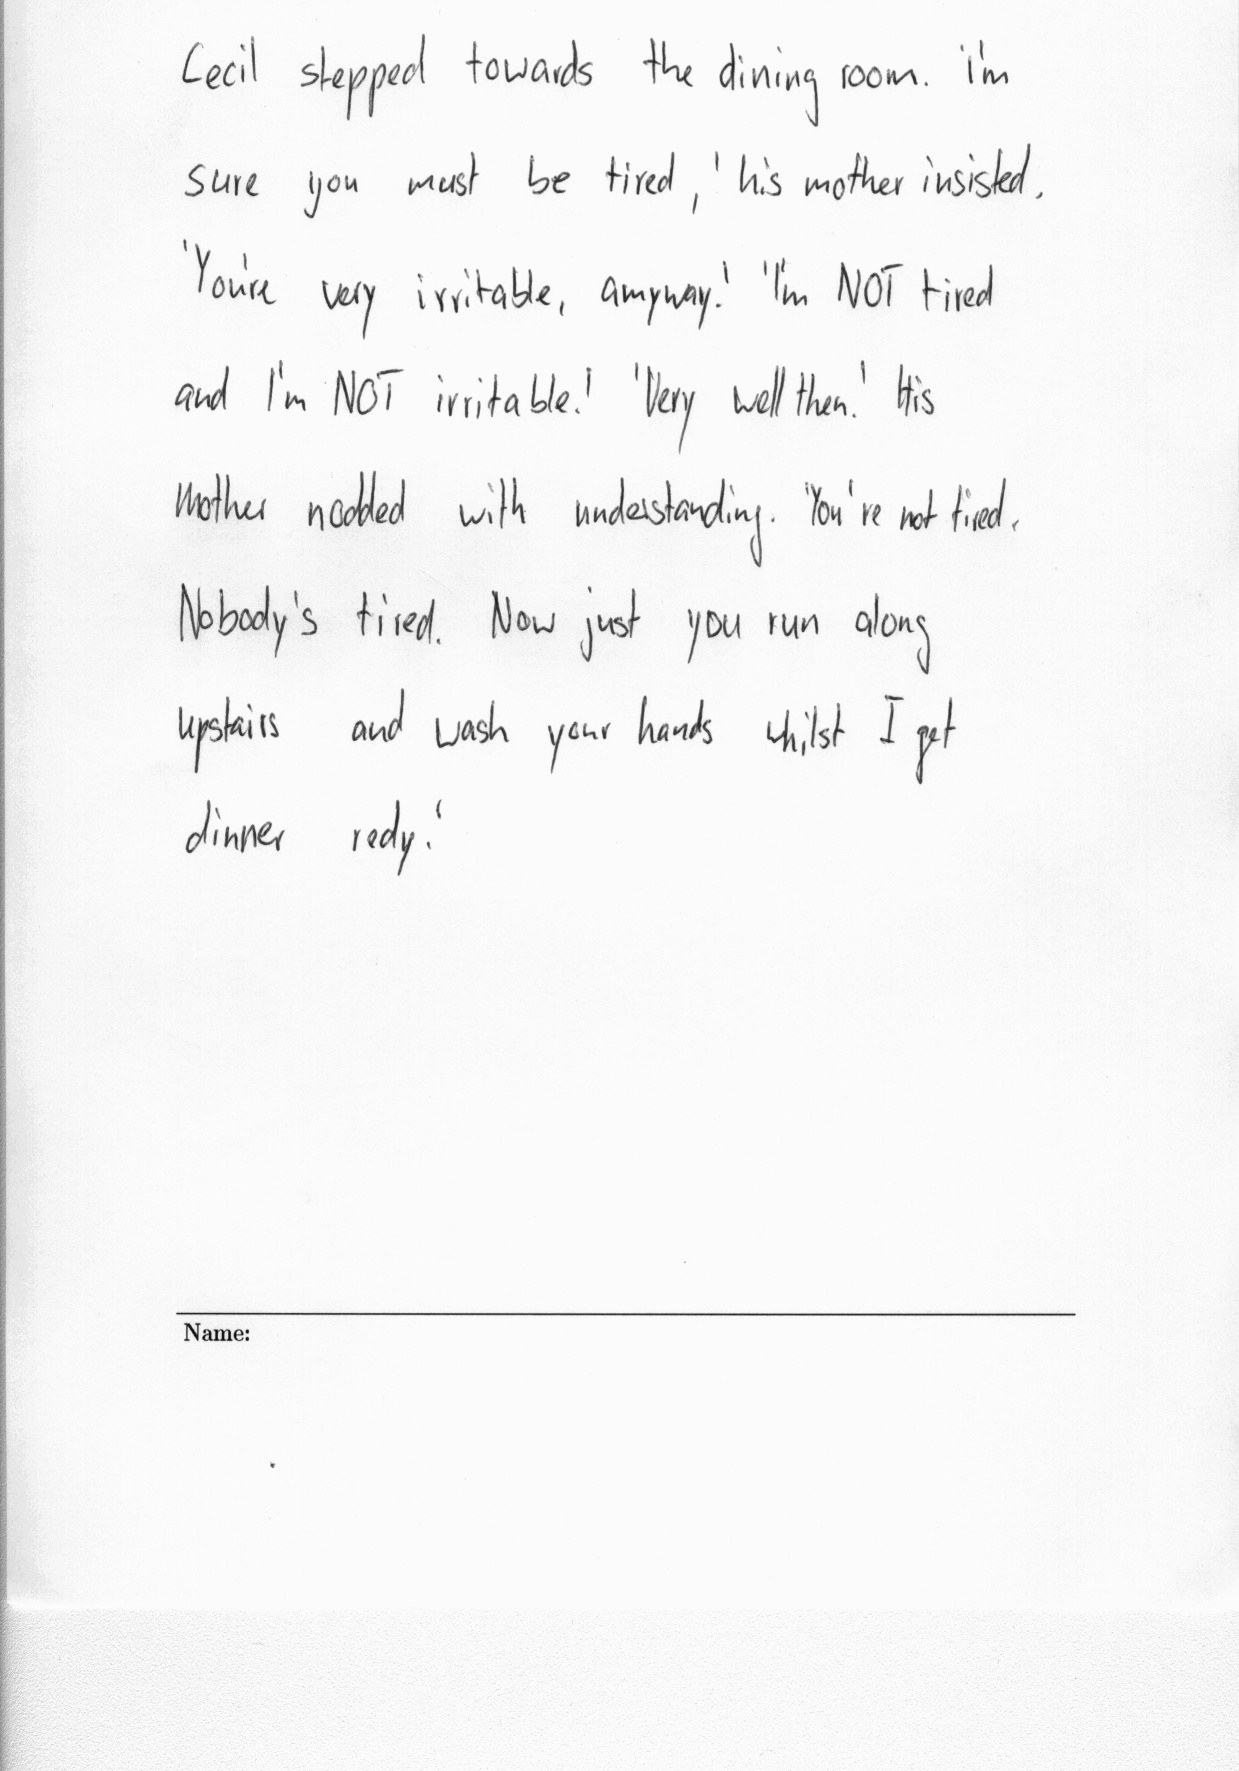 Cecil stepped towards the dining room. 'I'm
sure you must be tired,' his mother insisted.
'You're very irritable, amyway.' 'I'm NOT tired
and I'm NOT irritable.' 'Very well then.' His
mother nodded with understanding. 'You're not tired.
Nobody's tired. Now just you run along
upstairs and wash your hands whilst I get
dinner redy.'
Name: